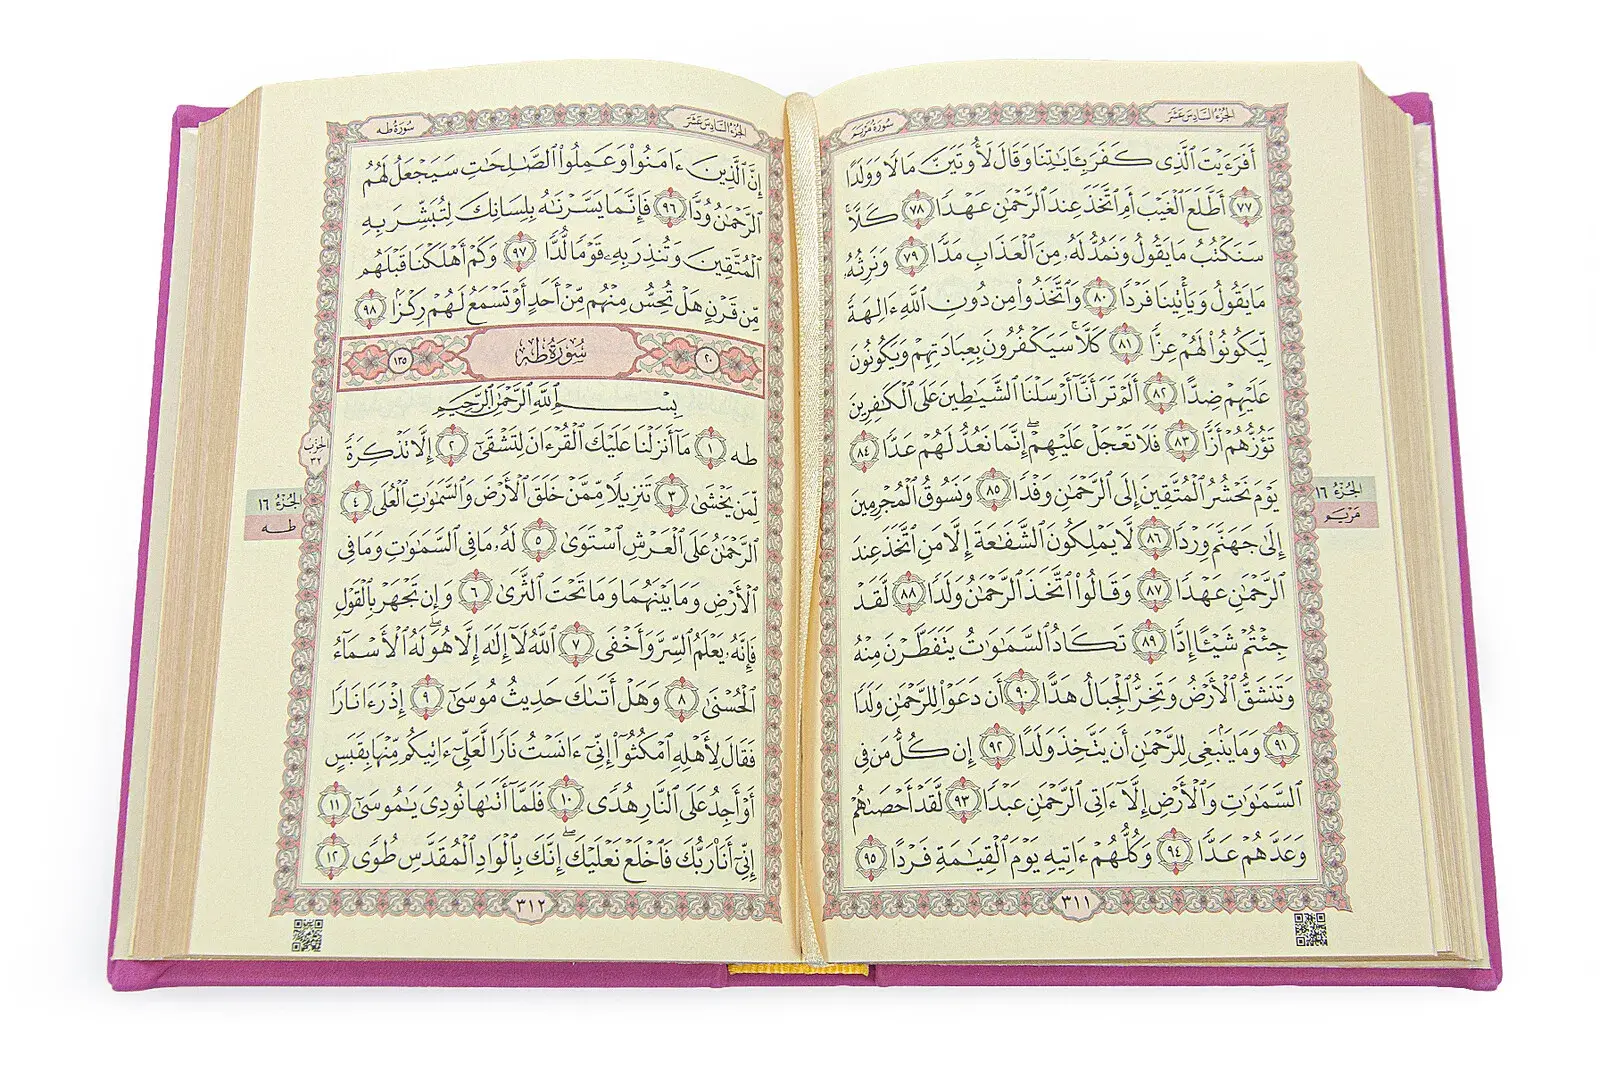 سورة مريم
الجزء السادس عشر
أَفَرَءَيْتَ الَّذِى كَفَرَ بِـَٔايَـٰتِنَا وَقَالَ لَأُوتَيَنَّ مَالًا وَوَلَدًا
٧٧ أَطَّلَعَ الْغَيْبَ أَمِ اتَّخَذَ عِندَ الرَّحْمَـٰنِ عَهْدًا ٧٨ كَلَّا
سَنَكْتُبُ مَا يَقُولُ وَنَمُدُّ لَهُۥ مِنَ الْعَذَابِ مَدًّا ٧٩ وَنَرِثُهُۥ
مَا يَقُولُ وَيَأْتِينَا فَرْدًا ٨٠ وَاتَّخَذُوا مِن دُونِ اللَّهِ ءَالِهَةً
لِّيَكُونُوا لَهُمْ عِزًّا ٨١ كَلَّا سَيَكْفُرُونَ بِعِبَادَتِهِمْ وَيَكُونُونَ
عَلَيْهِمْ ضِدًّا ٨٢ أَلَمْ تَرَ أَنَّا أَرْسَلْنَا الشَّيَـٰطِينَ عَلَى الْكَـٰفِرِينَ
تَؤُزُّهُمْ أَزًّا ٨٣ فَلَا تَعْجَلْ عَلَيْهِمْ إِنَّمَا نَعُدُّ لَهُمْ عَدًّا ٨٤
يَوْمَ نَحْشُرُ الْمُتَّقِينَ إِلَى الرَّحْمَـٰنِ وَفْدًا ٨٥ وَنَسُوقُ الْمُجْرِمِينَ
إِلَىٰ جَهَنَّمَ وِرْدًا ٨٦ لَّا يَمْلِكُونَ الشَّفَـٰعَةَ إِلَّا مَنِ اتَّخَذَ عِندَ
الرَّحْمَـٰنِ عَهْدًا ٨٧ وَقَالُوا اتَّخَذَ الرَّحْمَـٰنُ وَلَدًا ٨٨ لَّقَدْ
جِئْتُمْ شَيْـًٔا إِدًّا ٨٩ تَكَادُ السَّمَـٰوَٰتُ يَتَفَطَّرْنَ مِنْهُ
وَتَنشَقُّ الْأَرْضُ وَتَخِرُّ الْجِبَالُ هَدًّا ٩٠ أَن دَعَوْا لِلرَّحْمَـٰنِ وَلَدًا
٩١ وَمَا يَنۢبَغِى لِلرَّحْمَـٰنِ أَن يَتَّخِذَ وَلَدًا ٩٢ إِن كُلُّ مَن فِى
السَّمَـٰوَٰتِ وَالْأَرْضِ إِلَّا ءَاتِى الرَّحْمَـٰنِ عَبْدًا ٩٣ لَّقَدْ أَحْصَىٰهُمْ
وَعَدَّهُمْ عَدًّا ٩٤ وَكُلُّهُمْ ءَاتِيهِ يَوْمَ الْقِيَـٰمَةِ فَرْدًا ٩٥
٣١١
الجزء ١٦
مريم
سورة طه
الجزء السادس عشر
إِنَّ الَّذِينَ ءَامَنُوا وَعَمِلُوا الصَّـٰلِحَـٰتِ سَيَجْعَلُ لَهُمُ
الرَّحْمَـٰنُ وُدًّا ٩٦ فَإِنَّمَا يَسَّرْنَـٰهُ بِلِسَانِكَ لِتُبَشِّرَ بِهِ
الْمُتَّقِينَ وَتُنذِرَ بِهِۦ قَوْمًا لُّدًّا ٩٧ وَكَمْ أَهْلَكْنَا قَبْلَهُم
مِّن قَرْنٍ هَلْ تُحِسُّ مِنْهُم مِّنْ أَحَدٍ أَوْ تَسْمَعُ لَهُمْ رِكْزًا ٩٨
٢٠ سُورَةُ طه ١٣٥
بِسْمِ اللَّهِ الرَّحْمَـٰنِ الرَّحِيمِ
طه ١ مَا أَنزَلْنَا عَلَيْكَ الْقُرْءَانَ لِتَشْقَىٰ ٢ إِلَّا تَذْكِرَةً
لِّمَن يَخْشَىٰ ٣ تَنزِيلًا مِّمَّنْ خَلَقَ الْأَرْضَ وَالسَّمَـٰوَٰتِ الْعُلَى ٤
الرَّحْمَـٰنُ عَلَى الْعَرْشِ اسْتَوَىٰ ٥ لَهُۥ مَا فِى السَّمَـٰوَٰتِ وَمَا فِى
الْأَرْضِ وَمَا بَيْنَهُمَا وَمَا تَحْتَ الثَّرَىٰ ٦ وَإِن تَجْهَرْ بِالْقَوْلِ
فَإِنَّهُۥ يَعْلَمُ السِّرَّ وَأَخْفَى ٧ اللَّهُ لَا إِلَـٰهَ إِلَّا هُوَ لَهُ الْأَسْمَاءُ
الْحُسْنَىٰ ٨ وَهَلْ أَتَىٰكَ حَدِيثُ مُوسَىٰ ٩ إِذْ رَءَا نَارًا
فَقَالَ لِأَهْلِهِ امْكُثُوا إِنِّى ءَانَسْتُ نَارًا لَّعَلِّى ءَاتِيكُم مِّنْهَا بِقَبَسٍ
أَوْ أَجِدُ عَلَى النَّارِ هُدًى ١٠ فَلَمَّا أَتَىٰهَا نُودِىَ يَـٰمُوسَىٰ ١١
إِنِّى أَنَا رَبُّكَ فَاخْلَعْ نَعْلَيْكَ إِنَّكَ بِالْوَادِ الْمُقَدَّسِ طُوًى ١٢
٣١٢
الحزب
٣٢
الجزء ١٦
طه